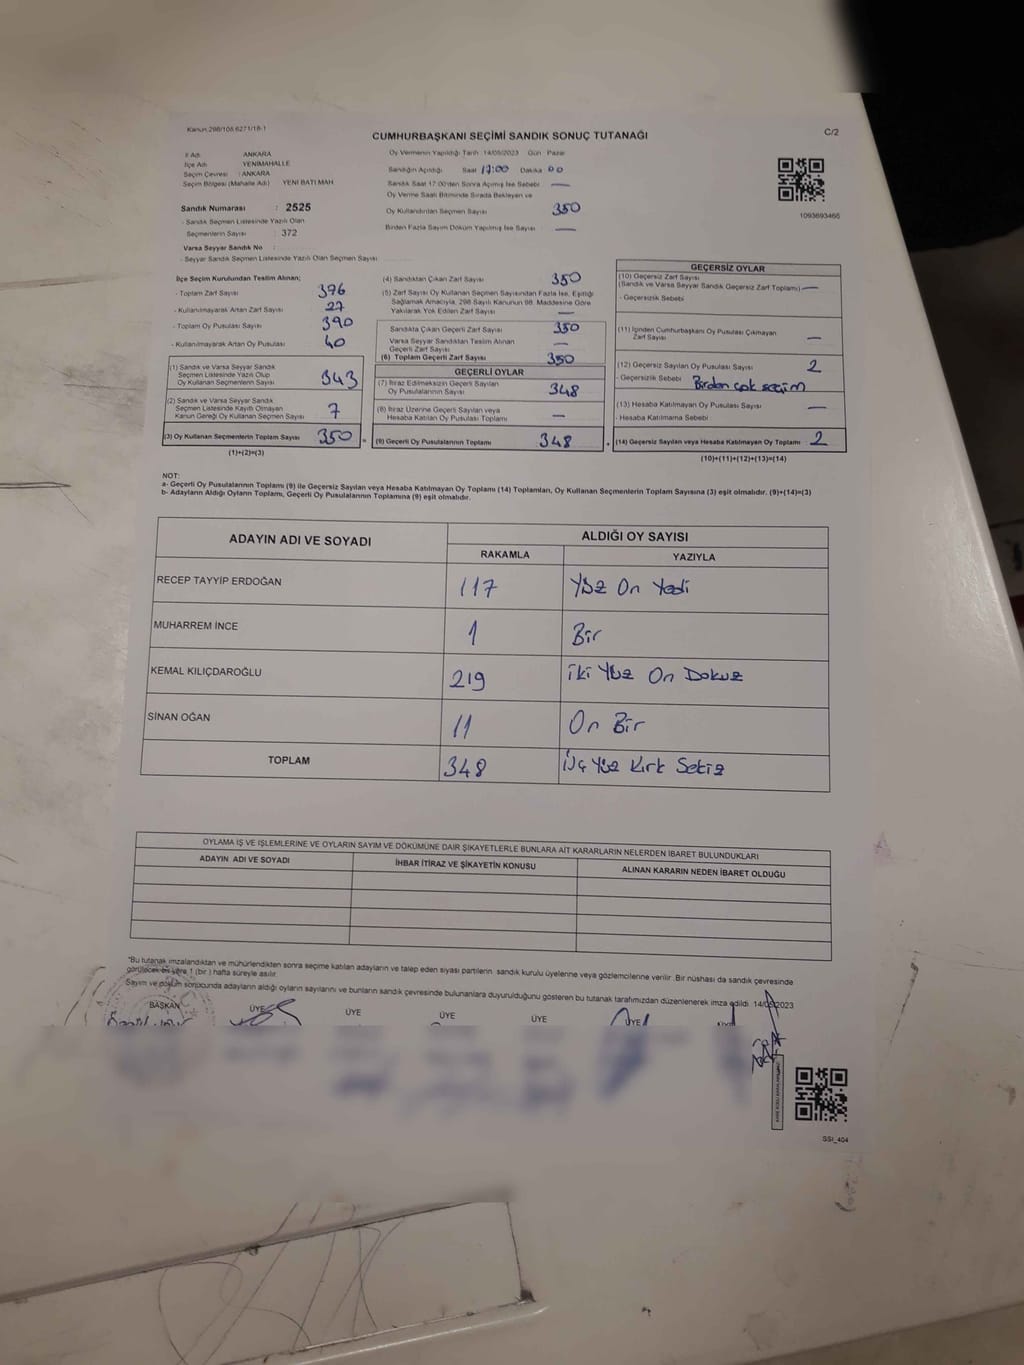 Kanun:298/105.6271/18-1
CUMHURBAŞKANI SEÇİMİ SANDIK SONUÇ TUTANAĞI
C/2
İl Adı : ANKARA
İlçe Adı : YENİMAHALLE
Seçim Çevresi : ANKARA
Seçim Bölgesi (Mahalle Adı) : YENİ BATI MAH
Sandık Numarası : 2525
- Sandık Seçmen Listesinde Yazılı Olan
Seçmenlerin Sayısı : 372
Varsa Seyyar Sandık No :
- Seyyar Sandık Seçmen Listesinde Yazılı Olan Seçmen Sayısı
Oy Vermenin Yapıldığı Tarih 14/05/2023 Gün Pazar
Sandığın Açıldığı Saat 17:00 Dakika 00
Sandık Saat 17:00'den Sonra Açılmış İse Sebebi —
Oy Verme Saati Bitiminde Sırada Bekleyen ve
Oy Kullandırılan Seçmen Sayısı 350
Birden Fazla Sayım Döküm Yapılmış İse Sayısı —
1093693466
İlçe Seçim Kurulundan Teslim Alınan;
- Toplam Zarf Sayısı 396
- Kullanılmayarak Artan Zarf Sayısı 27
- Toplam Oy Pusulası Sayısı 390
- Kullanılmayarak Artan Oy Pusulası 40
(1) Sandık ve Varsa Seyyar Sandık
Seçmen Listesinde Yazılı Olup
Oy Kullanan Seçmenlerin Sayısı 343
(2) Sandık ve Varsa Seyyar Sandık
Seçmen Listesinde Kayıtlı Olmayan
Kanun Gereği Oy Kullanan Seçmen Sayısı 7
(3) Oy Kullanan Seçmenlerin Toplam Sayısı 350 =
(1)+(2)=(3)
(4) Sandıktan Çıkan Zarf Sayısı 350
(5) Zarf Sayısı Oy Kullanan Seçmen Sayısından Fazla İse, Eşitliği
Sağlamak Amacıyla, 298 Sayılı Kanunun 98. Maddesine Göre
Yakılarak Yok Edilen Zarf Sayısı —
Sandıkta Çıkan Geçerli Zarf Sayısı 350
Varsa Seyyar Sandıktan Teslim Alınan
Geçerli Zarf Sayısı —
(6) Toplam Geçerli Zarf Sayısı 350
GEÇERLİ OYLAR
(7) İtiraz Edilmeksizin Geçerli Sayılan
Oy Pusulalarının Sayısı 348
(8) İtiraz Üzerine Geçerli Sayılan veya
Hesaba Katılan Oy Pusulaları Toplamı —
(9) Geçerli Oy Pusulalarının Toplamı 348 +
GEÇERSİZ OYLAR
(10) Geçersiz Zarf Sayısı
(Sandık ve Varsa Seyyar Sandık Geçersiz Zarf Toplamı) —
- Geçersizlik Sebebi
(11) İçinden Cumhurbaşkanı Oy Pusulası Çıkmayan
Zarf Sayısı —
(12) Geçersiz Sayılan Oy Pusulası Sayısı 2
- Geçersizlik Sebebi Birden çok seçim
(13) Hesaba Katılmayan Oy Pusulası Sayısı —
- Hesaba Katılmama Sebebi
(14) Geçersiz Sayılan veya Hesaba Katılmayan Oy Toplamı 2
(10)+(11)+(12)+(13)=(14)
NOT:
a- Geçerli Oy Pusulalarının Toplamı (9) ile Geçersiz Sayılan veya Hesaba Katılmayan Oy Toplamı (14) Toplamları, Oy Kullanan Seçmenlerin Toplam Sayısına (3) eşit olmalıdır. (9)+(14)=(3)
b- Adayların Aldığı Oyların Toplamı, Geçerli Oy Pusulalarının Toplamına (9) eşit olmalıdır.
ADAYIN ADI VE SOYADI ALDIĞI OY SAYISI
RAKAMLA YAZIYLA
RECEP TAYYİP ERDOĞAN 117 Yüz On Yedi
MUHARREM İNCE 1 Bir
KEMAL KILIÇDAROĞLU 219 İki Yüz On Dokuz
SİNAN OĞAN 11 On Bir
TOPLAM 348 Üç Yüz Kırk Sekiz
OYLAMA İŞ VE İŞLEMLERİNE VE OYLARIN SAYIM VE DÖKÜMÜNE DAİR ŞİKAYETLERLE BUNLARA AİT KARARLARIN NELERDEN İBARET BULUNDUKLARI
ADAYIN ADI VE SOYADI İHBAR İTİRAZ VE ŞİKAYETİN KONUSU ALINAN KARARIN NEDEN İBARET OLDUĞU
*Bu tutanak imzalandıktan ve mühürlendikten sonra seçime katılan adayların ve talep eden siyasi partilerin sandık kurulu üyelerine veya gözlemcilerine verilir. Bir nüshası da sandık çevresinde
görülecek bir yere 1 (bir ) hafta süreyle asılır.
Sayım ve döküm sonucunda adayların aldığı oyların sayılarını ve bunların sandık çevresinde bulunanlara duyurulduğunu gösteren bu tutanak tarafımızdan düzenlenerek imza edildi. 14/05/2023
BAŞKAN ÜYE ÜYE ÜYE ÜYE ÜYE
SSI_404